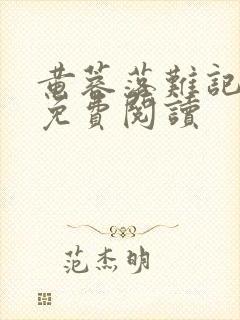 黄蓉落難記
免費閱讀
范杰明